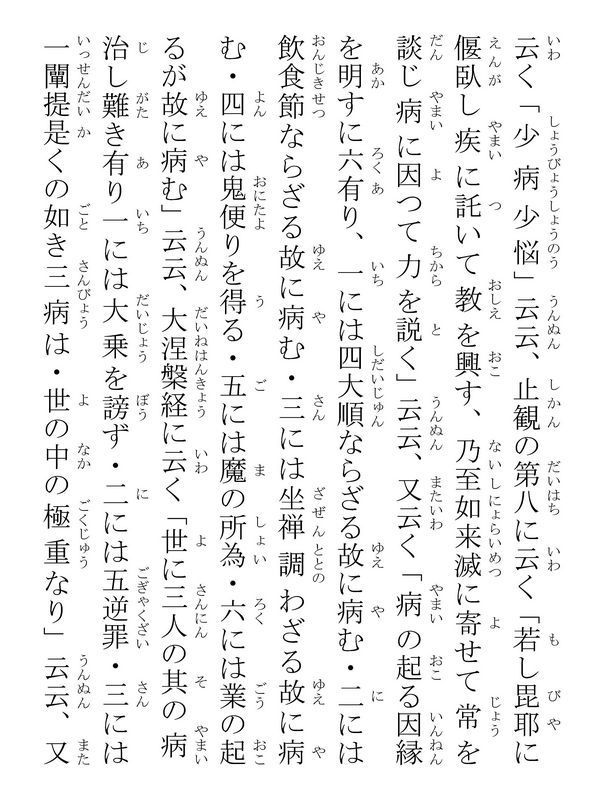 云く「少病少悩」云云、止観の第八に云く「若し毘耶に
偃臥し疾に託いて教を興す、乃至如来滅に寄せて常を
談じ病に因つて力を説く」云云、又云く「病の起る因縁
を明すに六有り、一には四大順ならざる故に病む・二には
飲食節ならざる故に病む・三には坐禅調わざる故に病
む・四には鬼便りを得る・五には魔の所為・六には業の起
るが故に病む」云云、大涅槃経に云く「世に三人の其の病
治し難き有り一には大乗を謗ず・二には五逆罪・三には
一闡提是くの如き三病は・世の中の極重なり」云云、又